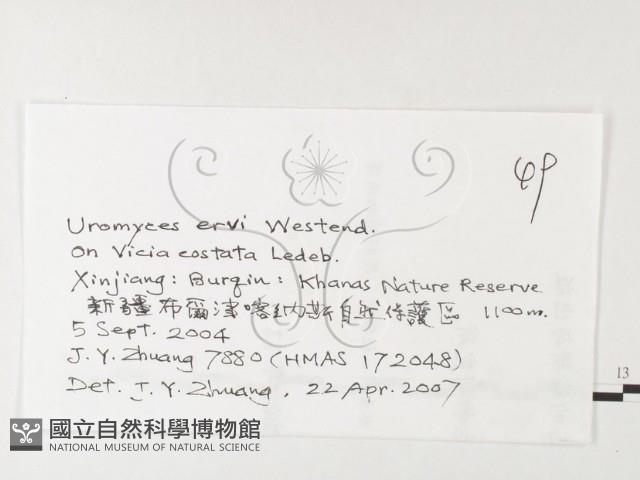 Uromyces ervi Westend.
on Vicia costata Ledeb.
Xinjiang: Burqin: Khanas Nature Reserve
新疆布爾津喀納斯自然保護區 1100m.
5 Sept. 2004
J. Y. Zhuang 7880 (HMAS 172048)
Det. J. Y. Zhuang, 22 Apr. 2007
13
國立自然科學博物館
NATIONAL MUSEUM OF NATURAL SCIENCE